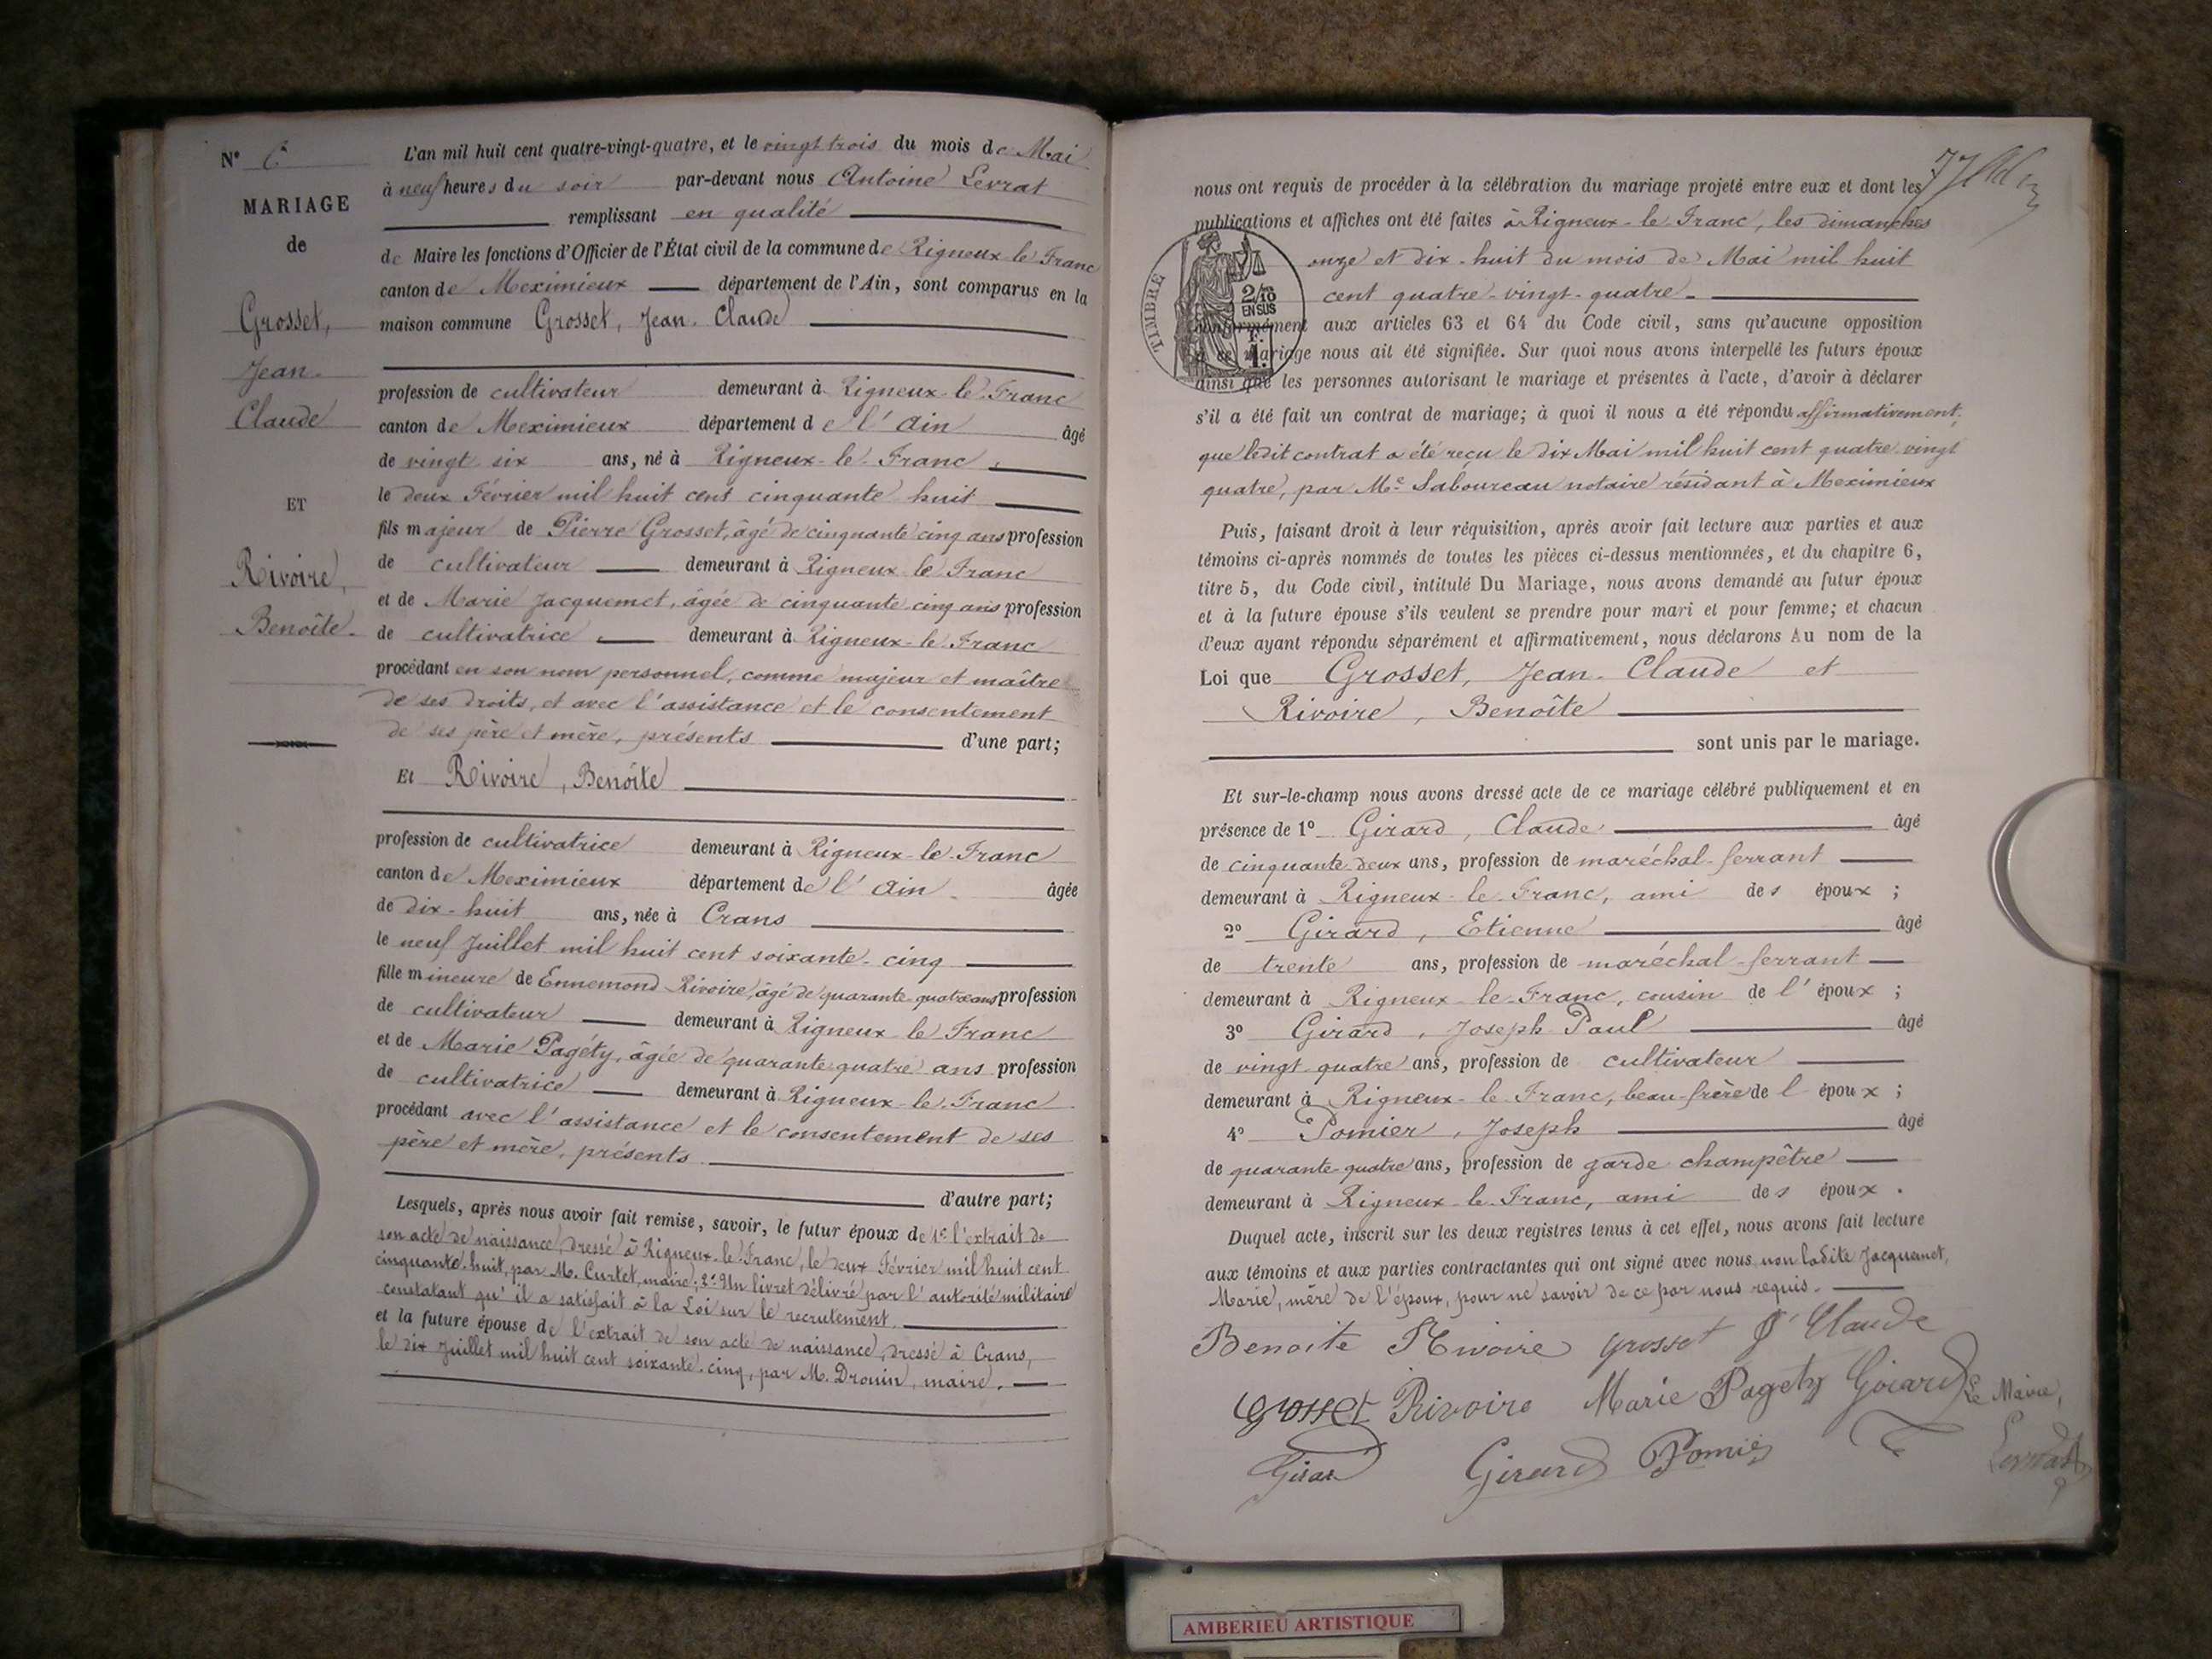 N° 6
MARIAGE
de
Grosset,
Jean-
Claude
ET
Rivoire,
Benoîte.
L'an mil huit cent quatre-vingt-quatre, et le vingt trois du mois de Mai
à neuf heures du soir par-devant nous Antoine Levrat
remplissant en qualité
de Maire les fonctions d'Officier de l'État civil de la commune de Rigneux-le-Franc
canton de Meximieux département de l'Ain, sont comparus en la
maison commune Grosset, Jean-Claude
profession de cultivateur demeurant à Rigneux-le-Franc
canton de Meximieux département de l'Ain âgé
de vingt six ans, né à Rigneux-le-Franc,
le deux Février mil huit cent cinquante huit
fils majeur de Pierre Grosset, âgé de cinquante cinq ans profession
de cultivateur demeurant à Rigneux le Franc
et de Marie Jacquemet, âgée de cinquante-cinq ans profession
de cultivatrice demeurant à Rigneux-le-Franc
procédant en son nom personnel, comme majeur et maître
de ses droits, et avec l'assistance et le consentement
de ses père et mère, présents d'une part;
Et Rivoire, Benoîte
profession de cultivatrice demeurant à Rigneux-le-Franc
canton de Meximieux département de l'Ain âgée
de dix-huit ans, née à Crans
le neuf Juillet mil huit cent soixante-cinq
fille mineure de Ennemond Rivoire, âgé de quarante-quatre ans profession
de cultivateur demeurant à Rigneux le Franc
et de Marie Pagéty, âgée de quarante-quatre ans profession
de cultivatrice demeurant à Rigneux-le-Franc
procédant avec l'assistance et le consentement de ses
père et mère, présents
d'autre part;
Lesquels, après nous avoir fait remise, savoir, le futur époux de 1° l'extrait de
son acte de naissance, dressé à Rigneux-le-Franc, le deux Février mil huit cent
cinquante-huit, par M. Curtet, maire; 2° Un livret délivré par l'autorité militaire
constatant qu'il a satisfait à la Loi sur le recrutement.
et la future épouse de l'extrait de son acte de naissance, dressé à Crans,
le dix Juillet mil huit cent soixante-cinq, par M. Drouin, maire.
77
nous ont requis de procéder à la célébration du mariage projeté entre eux et dont les
publications et affiches ont été faites à Rigneux-le-Franc, les dimanches
onze et dix-huit du mois de Mai mil huit
cent quatre-vingt-quatre-
conformément aux articles 63 et 64 du Code civil, sans qu'aucune opposition
à ce mariage nous ait été signifiée. Sur quoi nous avons interpellé les futurs époux
ainsi que les personnes autorisant le mariage et présentes à l'acte, d'avoir à déclarer
TIMBRE
2/10
EN SUS
F.
1.
s'il a été fait un contrat de mariage; à quoi il nous a été répondu affirmativement,
que ledit contrat a été reçu le dix Mai mil huit cent quatre vingt
quatre, par Me Laboureau notaire résidant à Meximieux
Puis, faisant droit à leur réquisition, après avoir fait lecture aux parties et aux
témoins ci-après nommés de toutes les pièces ci-dessus mentionnées, et du chapitre 6,
titre 5, du Code civil, intitulé Du Mariage, nous avons demandé au futur époux
et à la future épouse s'ils veulent se prendre pour mari et pour femme; et chacun
d'eux ayant répondu séparément et affirmativement, nous déclarons Au nom de la
Loi que Grosset, Jean-Claude et
Rivoire, Benoîte
sont unis par le mariage.
Et sur-le-champ nous avons dressé acte de ce mariage célébré publiquement et en
présence de 1° Girard, Claude âgé
de cinquante-deux ans, profession de maréchal-ferrant
demeurant à Rigneux-le-Franc, ami des époux;
2° Girard, Etienne âgé
de trente ans, profession de maréchal-ferrant
demeurant à Rigneux-le-Franc, cousin de l'époux;
3° Girard, Joseph Paul âgé
de vingt quatre ans, profession de cultivateur
demeurant à Rigneux-le-Franc, beau-frère de l époux;
4° Pomier, Joseph âgé
de quarante-quatre ans, profession de garde champêtre
demeurant à Rigneux-le-Franc, ami des époux.
Duquel acte, inscrit sur les deux registres tenus à cet effet, nous avons fait lecture
aux témoins et aux parties contractantes qui ont signé avec nous, non ladite Jacquemet,
Marie, mère de l'époux, pour ne savoir de ce par nous requis.
Benoite Rivoire Grosset J Claude
Grosset Rivoire Marie Pagety Girard Le Maire,
Girard Girard Pomier Levrat
AMBERIEU ARTISTIQUE